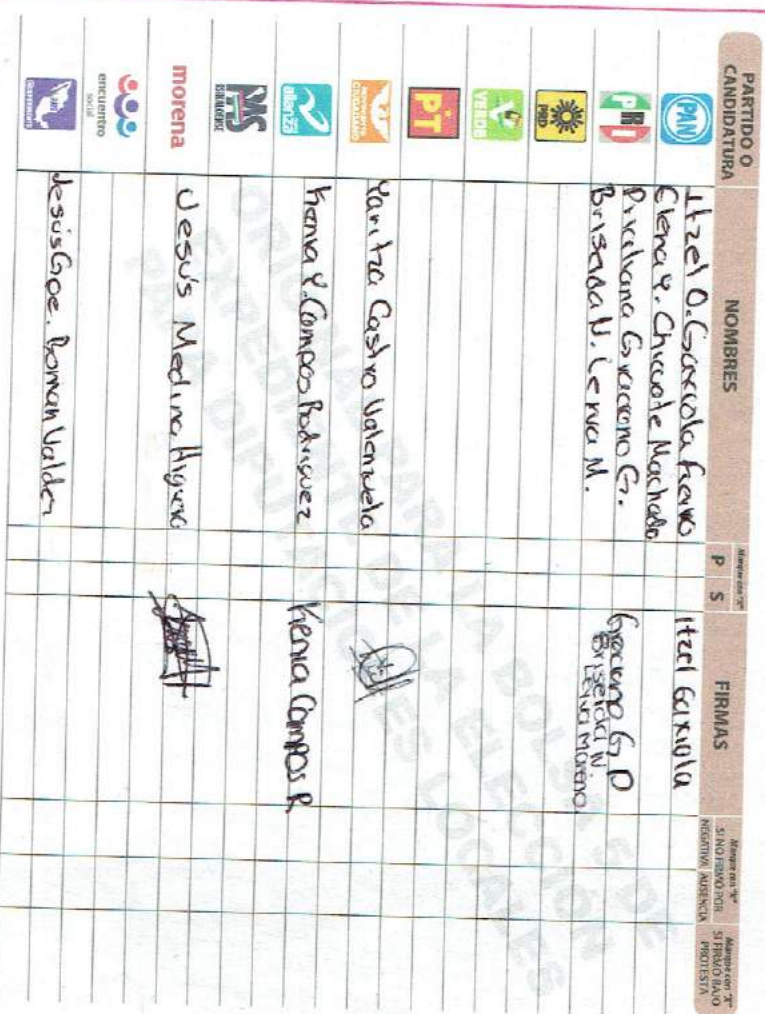 PARTIDO O CANDIDATURA
NOMBRES
Marque con "X"
P S
FIRMAS
Marque con "X" SI NO FIRMÓ POR
NEGATIVA AUSENCIA
Marque con "X" SI FIRMÓ BAJO PROTESTA
PAN
Itzel O. Gaxiola Fierro
Itzel Gaxiola
Elena Y. Chicuate Machado
PRI
Graciano G.
Graciano G P
Briseida N. Leyva M.
Briseida N. Leyva Moreno
PRD
VERDE
PT
MOVIMIENTO CIUDADANO
Yaritza Castro Valenzuela
nueva alianza
Kenia Y. Campos Rodriguez
Kenia Campos R
PAS
SINALOENSE
morena
Jesús Medina Higuera
encuentro social
Jesús Gpe. Roman Valdez
ORIGINAL PARA LA BOLSA S DE
EXPEDIENTE DE LA ELECCIÓN
PARA DIPUTACIONES LOCALES